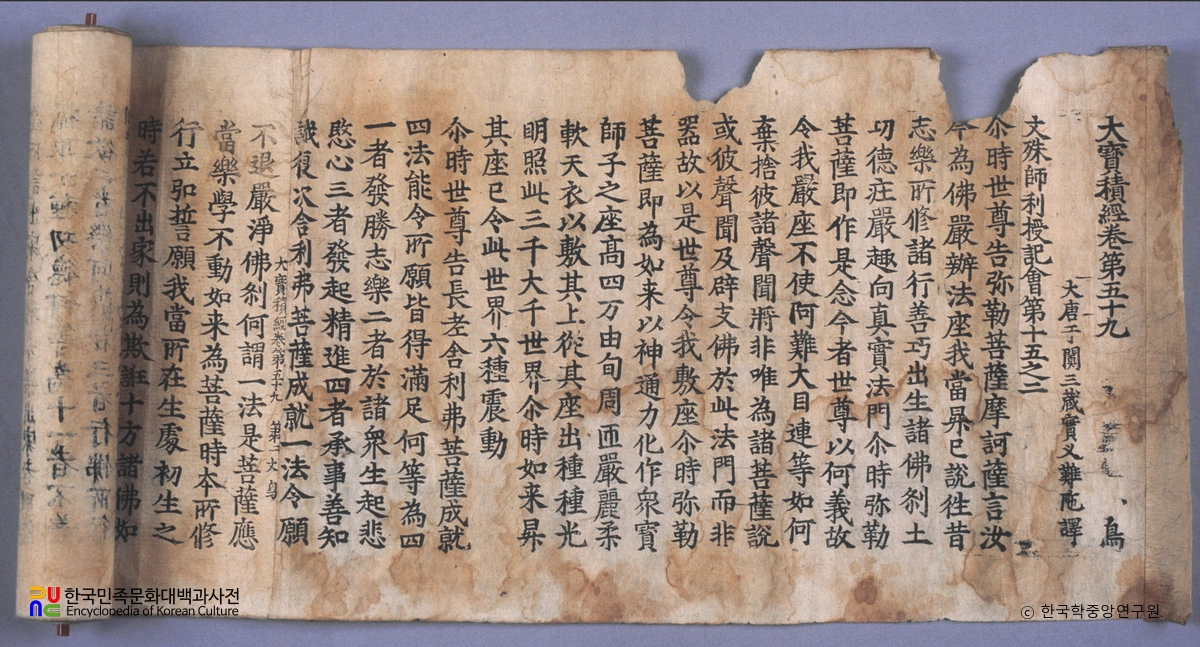 大寶積經卷第五十九
鳥
大唐于闐三藏實叉難陁譯
文殊師利授記會第十五之二
尒時世尊告弥勒菩薩摩訶薩言汝
今為佛嚴辦法座我當昇已說徃昔
志樂所修諸行善巧出生諸佛刹土
功德莊嚴趣向真實法門尒時弥勒
菩薩即作是念今者世尊以何義故
令我嚴座不使阿難大目連等如何
棄捨彼諸聲聞將非唯為諸菩薩說
或彼聲聞及辟支佛於此法門而非
器故以是世尊令我敷座尒時弥勒
菩薩即為如来以神通力化作衆寶
師子之座髙四万由旬周匝嚴麗柔
軟天衣以敷其上從其座出種種光
明照此三千大千世界尒時如来昇
其座已令此世界六種震動
尒時世尊告長老舍利弗菩薩成就
四法能令所願皆得滿足何等為四
一者發勝志樂二者於諸衆生起悲
愍心三者發起精進四者承事善知
識復次舍利弗菩薩成就一法令願
大寶積經卷第五十九 第二丈 鳥
不退嚴淨佛刹何謂一法是菩薩應
當樂學不動如来為菩薩時本所修
行立弘誓願我當所在生處初生之
時若不出家則為欺誑十方諸佛如
한국민족문화대백과사전
Encyclopedia of Korean Culture
ⓒ 한국학중앙연구원